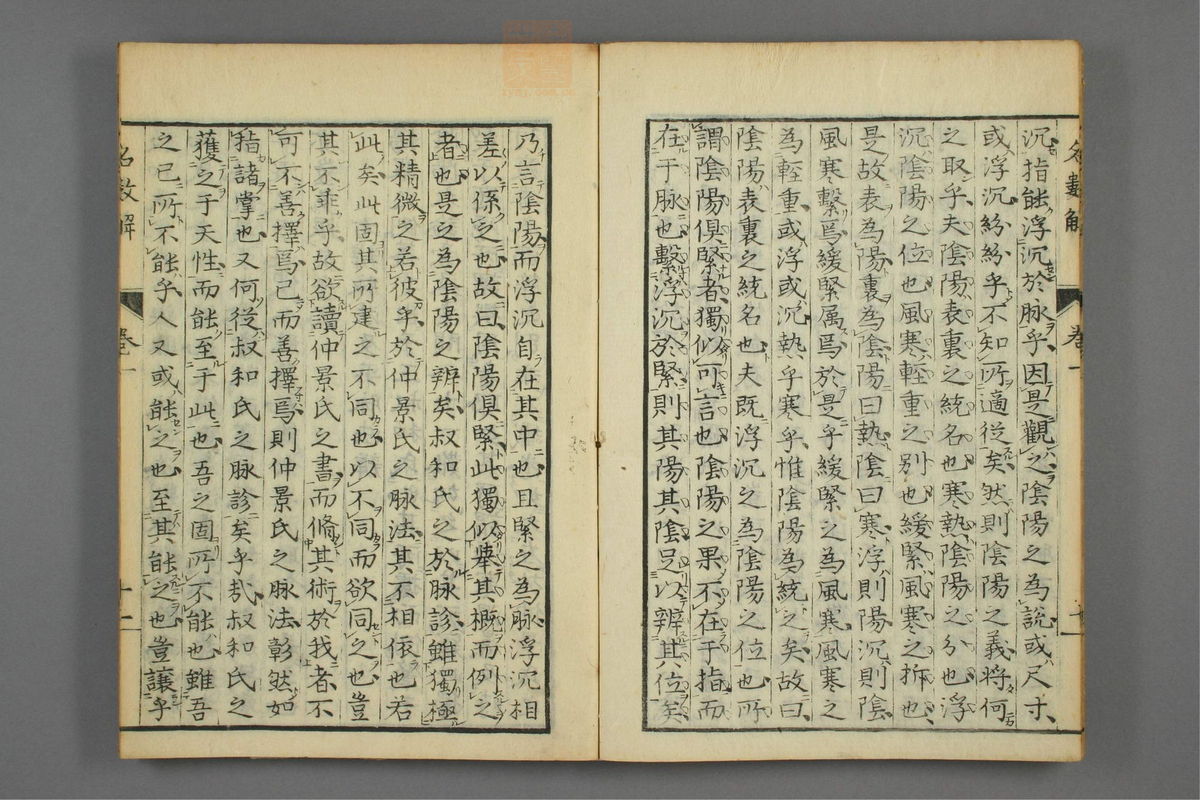 沉指能浮沉於脉乎因是觀之陰陽之為説或尺寸
或浮沉紛紛乎不知所適從矣然則陰陽之義將何
之取乎夫陰陽表裏之統名也寒熱陰陽之分也浮
沉陰陽之位也風寒輕重之别也緩緊風寒之拆也
是故表為陽裏為陰陽曰熱陰曰寒浮則陽沉則陰
風寒繫焉緩緊属焉於是乎緩緊之為風寒風寒之
為輕重或浮或沉熱乎寒乎惟陰陽為統之矣故曰
陰陽表裏之統名也夫既浮沉之為陰陽之位也所
謂陰陽俱緊者獨似可言也陰陽之果不在于指而
在于脉也繫浮沉於緊則其陽其陰足以辨其位矣
乃言陰陽而浮沉自在其中也且緊之為脉浮沉相
差以係之也故曰陰陽俱緊此獨似舉其概而例之
者也是之為陰陽之辨矣叔和氏之於脉診雖獨極
其精微之若彼乎於仲景氏之脉法其不相依也若
此矣此固其所建之不同也以不同而欲同之也豈
其不乖乎故欲讀仲景氏之書而脩其術於我者不
可不善擇焉已而善擇焉則仲景氏之脉法彰然如
指諸掌也又何從叔和氏之脉診矣乎哉叔和氏之
獲之于天性而能至于此也吾之固所不能也雖吾
之已所不能乎人又或能之也至其能之也豈讓乎
名數解
卷一
十二